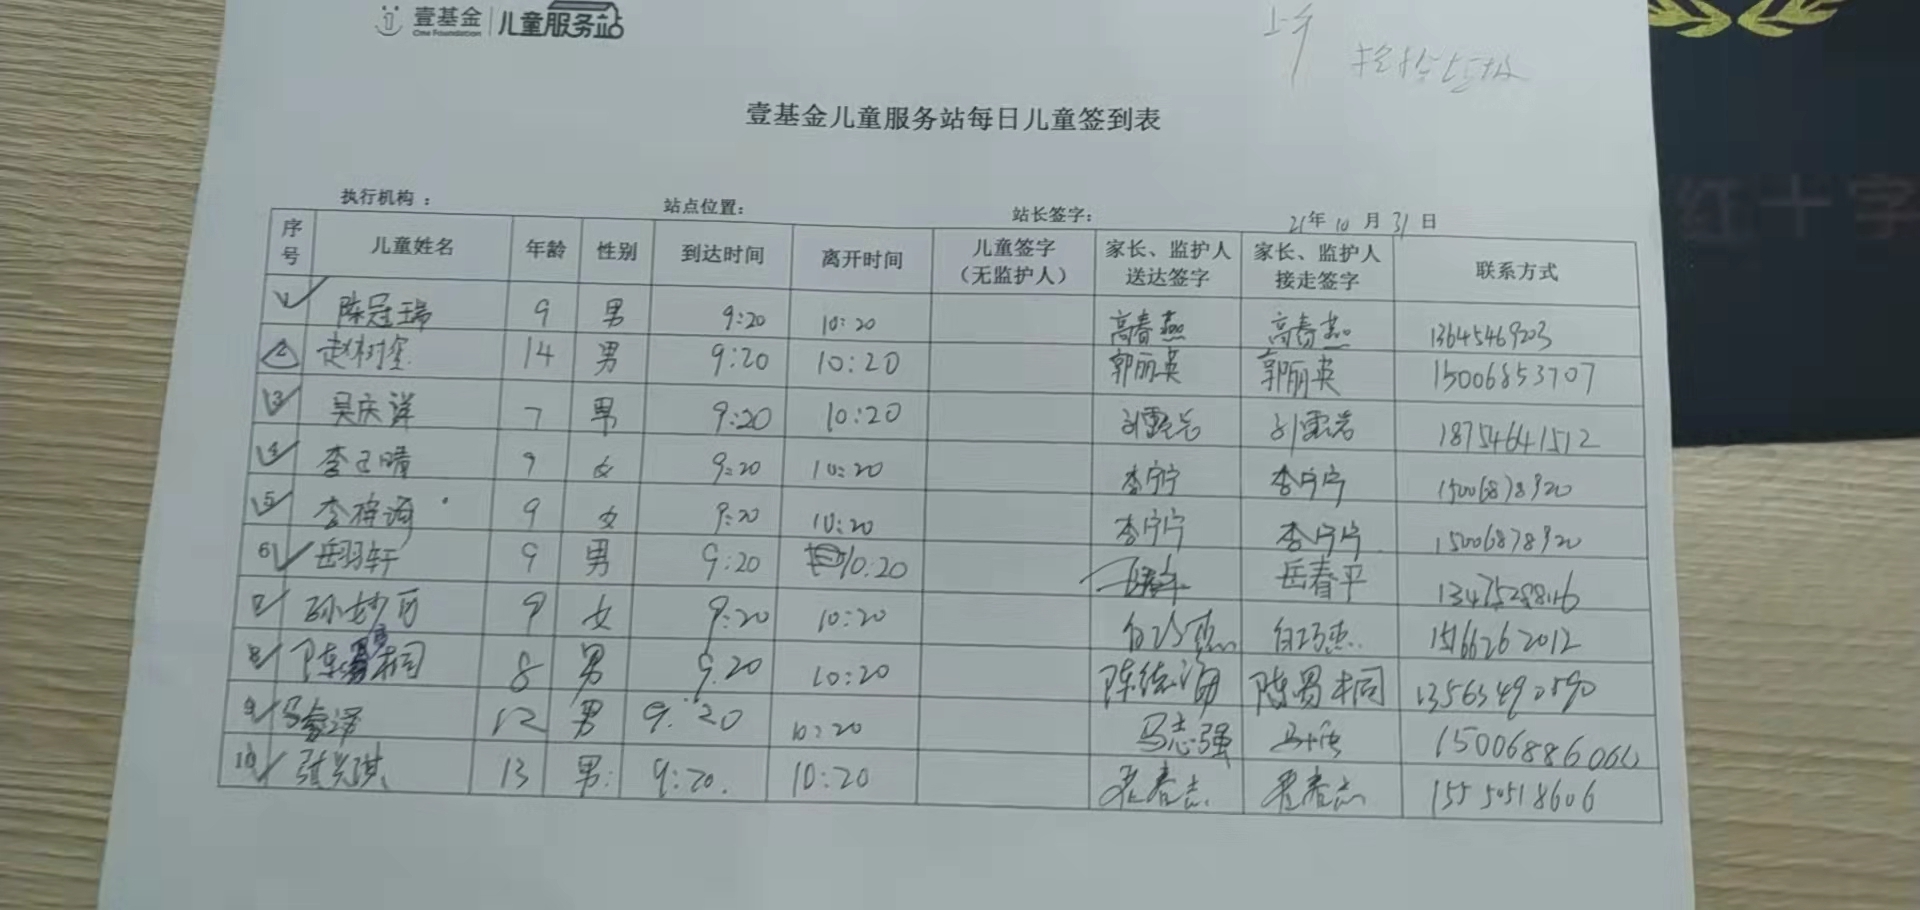 壹基金 儿童服务站
One Foundation
上午
壹基金儿童服务站每日儿童签到表
执行机构： 站点位置： 站长签字： 21年10月31日
序号 儿童姓名 年龄 性别 到达时间 离开时间 儿童签字（无监护人） 家长、监护人送达签字 家长、监护人接走签字 联系方式
1 陈冠瑞 9 男 9:20 10:20 高春燕 高春燕 13645469203
2 赵树 14 男 9:20 10:20 郭丽英 郭丽英 15006853707
3 吴庆洋 7 男 9:20 10:20 18754641512
4 李 晴 9 女 9:20 10:20 李宁宁 李宁宁 15006878920
5 李梓涵 9 女 9:20 10:20 李宁宁 李宁宁 15006878920
6 岳羽轩 9 男 9:20 10:20 岳春平
7 孙妙可 9 女 9:20 10:20
8 陈 桐 8 男 9.20 10:20 陈 桐
9 马 泽 12 男 9:20 10:20 马志强
10 张 琪 13 男 9:20. 10:20 15550518606
红十字